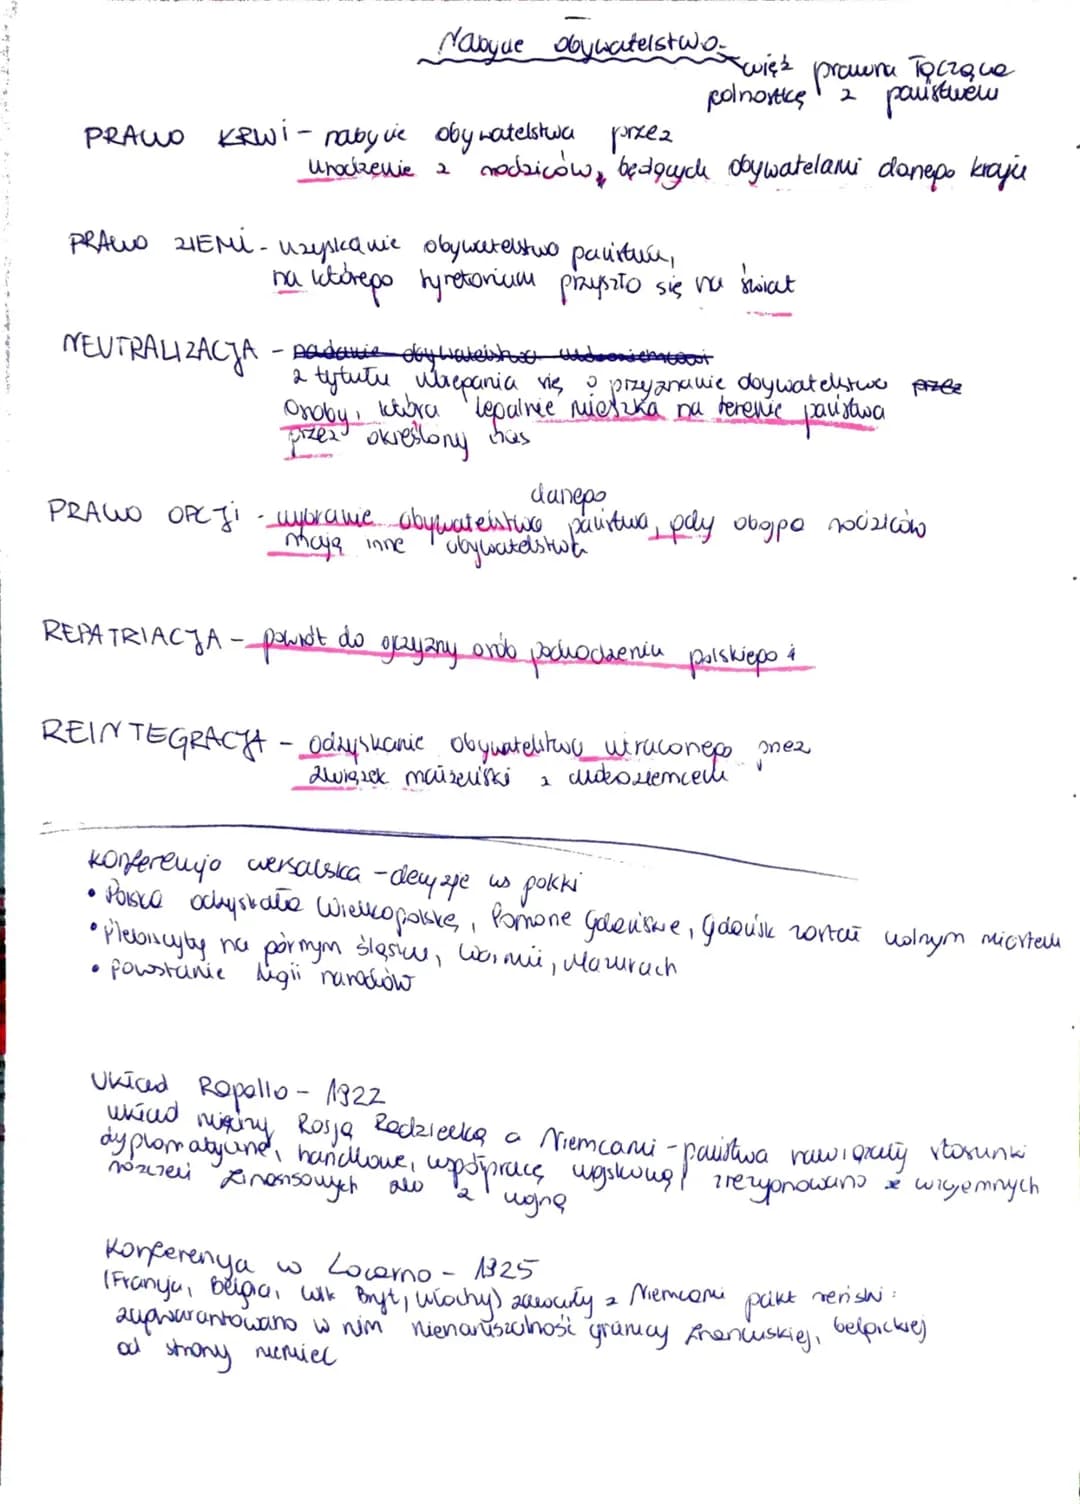 Nabycie obywatelstwa -
więź prawna łącząca
jednostkę z państwem
PRAWO KRWi - nabycie obywatelstwa przez
urodzenie z rodziców, będących obywatelami danego kraju
PRAWO ZIEMi - uzyskanie obywatelstwo państwa,
na którego tyretorium przyszło się na świat
NEUTRALIZACJA - nadanie obywatelstwa cudzoziemcowi
z tytułu ubiegania się o przyznanie obywatelstwa przez
Osoby, która legalnie mieszka na terenie państwa
przez określony czas
danego
PRAWO OPCJi - wybranie obywatelstwa państwa, gdy obojga rodziców
mają inne obywatelstwa
REPATRIACJA - powrót do ojczyzny osób pochodzenia polskiego i
REINTEGRACJA - odzyskanie obywatelstwa utraconego przez
związek małżeński z cudzoziemcem
Konferencja wersalska - decyzje ws polski
• Polska odzyskała Wielkopolskę, Pomorze Gdańskie, Gdańsk został wolnym miastem
• Plebiscyty na górnym śląsku, Warmii, Mazurach
• Powstanie Ligii narodów
Układ Rapallo - 1922
układ między Rosją Radziecką a Niemcami - państwa nawiązały stosunki
dyplomatyczne, handlowe, współpracę wojskową, zrezygnowano z wzajemnych
roszczeń finansowych za z wojną
Konferencja w Locarno - 1925
(Francja, Belgia, Wlk Bryt, Włochy) zawarły z Niemcami pakt reński:
zagwarantowano w nim nienaruszalność granicy francuskiej, belgickiej
od strony niemiec